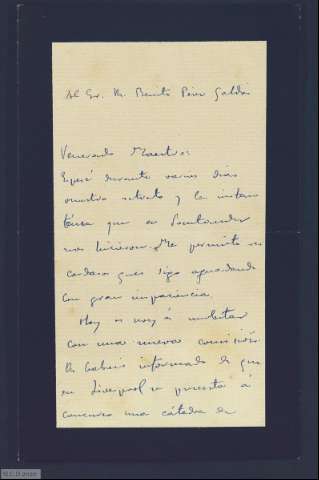 Al Sr. D. Benito Pérez Galdós
Venerado Maestro:
Esperé durante varios días
nuestro retrato y la instan
tánea que en Santander
nos hicieron. Me permito re
cordar que sigo aguardando
con gran impaciencia.
Hoy os voy á molestar
con una nueva comisión.
Os habéis informado de que
en Liverpool se presenta á
concurso una cátedra de